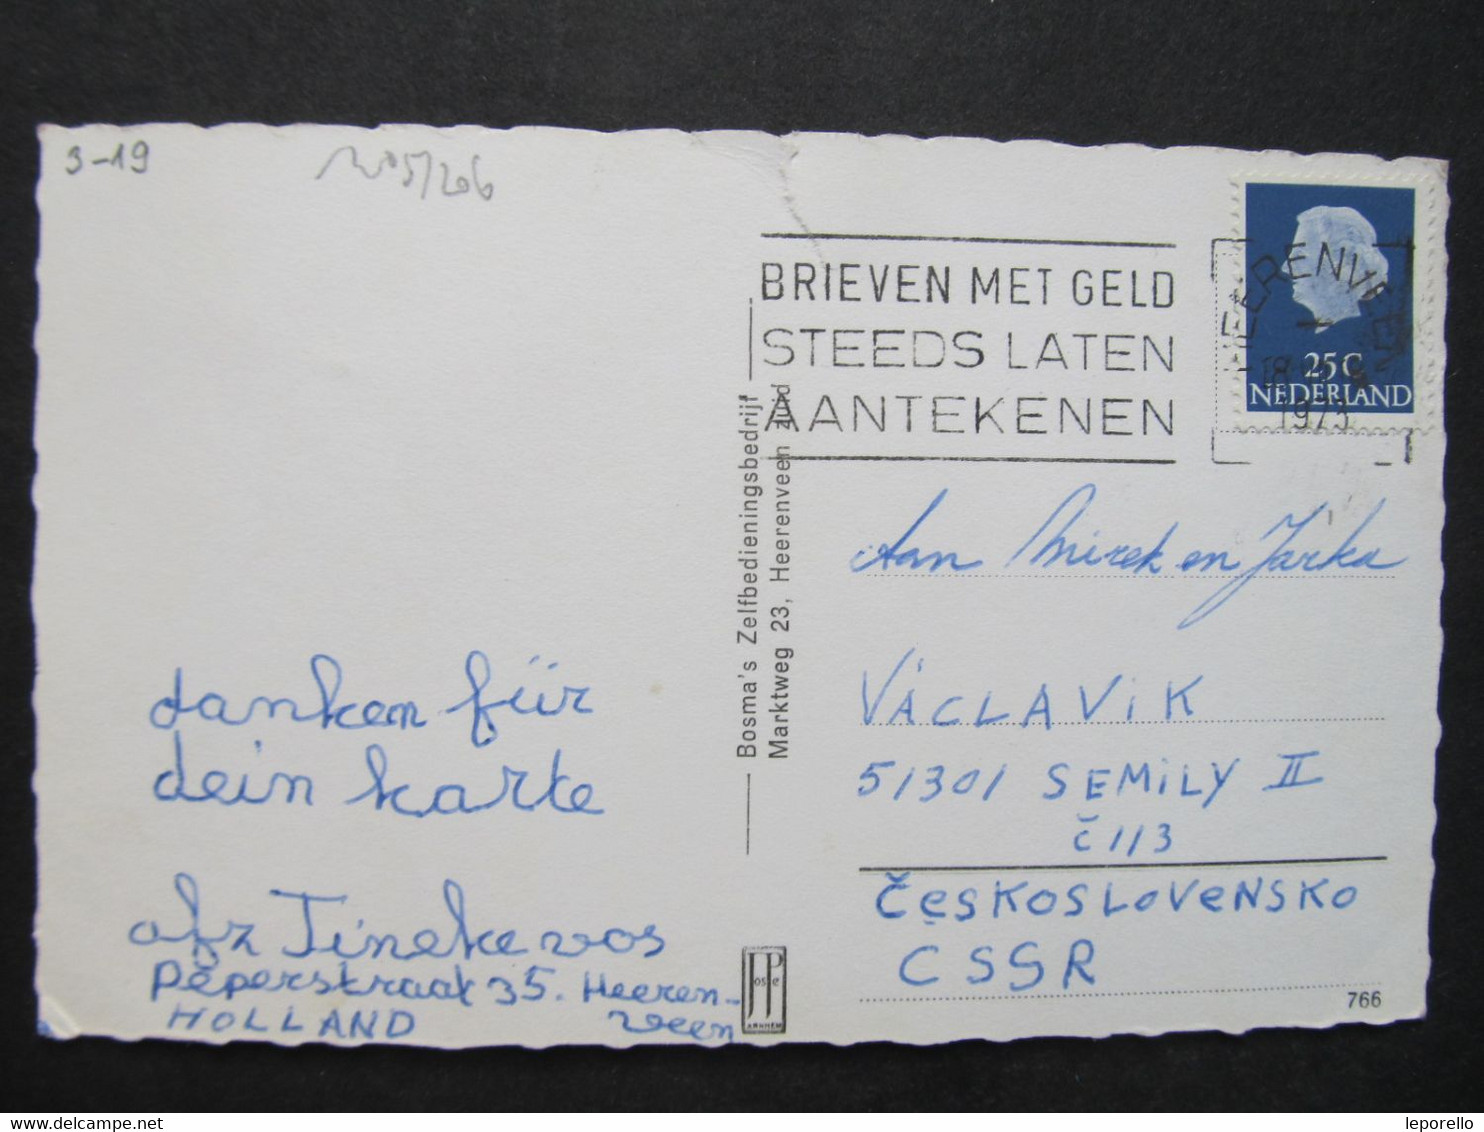 3-19
BRIEVEN MET GELD
STEEDS LATEN
AANTEKENEN
HEERENVEEN
1973
25 C
NEDERLAND
Bosma's Zelfbedieningsbedrijf
Marktweg 23, Heerenveen zuid
danken für
dein karte
afz Tineke vos
Peperstraat 35. Heeren-
veen
HOLLAND
Aan Mirek en Jarka
VÁCLAViK
51301 SEMiLY II
č 113
ČESKOSLOVENSKO
CSSR
JosPe
ARNHEM
766
delcampe.net
leporello